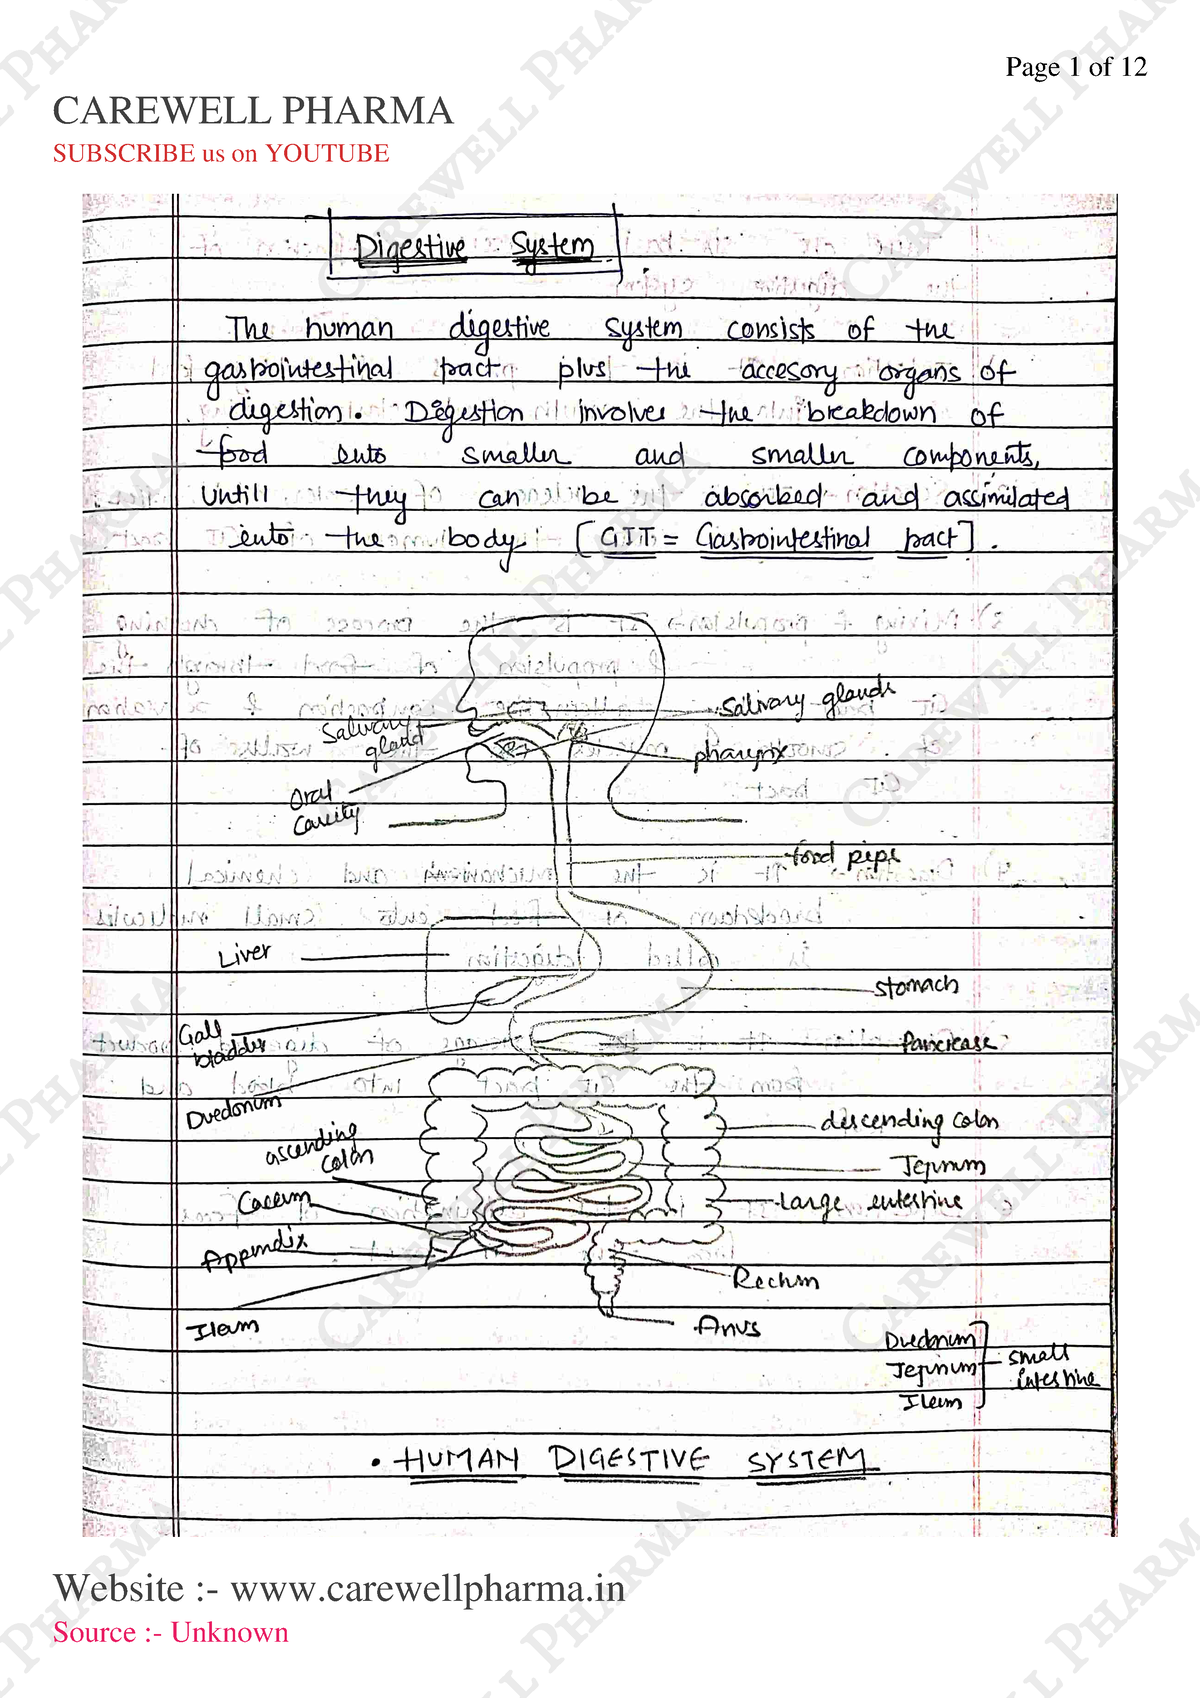 Page 1 of 12
CAREWELL PHARMA
SUBSCRIBE us on YOUTUBE
Digestive System
The human digestive system consists of the
gastrointestinal tract plus the accesory organs of
digestion. Digestion involves the breakdown of
food into smaller and smaller components,
Untill they can be absorbed and assimilated
into the body. [GIT = Gastrointestinal tract].
Salivary glands
Salivary
gland
pharynx
Oral
Cavity
food pipe
Liver
stomach
Gall
bladder
Pancrease
Duedonum
descending colon
ascending
colon
Jejnum
Caceum
Large intestine
Appendix
Rectum
Ileum
Anus
Duednum
Jejnum
Ileum
small
intestine
• HUMAN DIGESTIVE SYSTEM
Website :- www.carewellpharma.in
Source :- Unknown
CAREWELL PHARMA